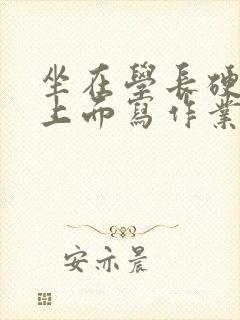 坐在學長硬
上面寫作業
安亦晨